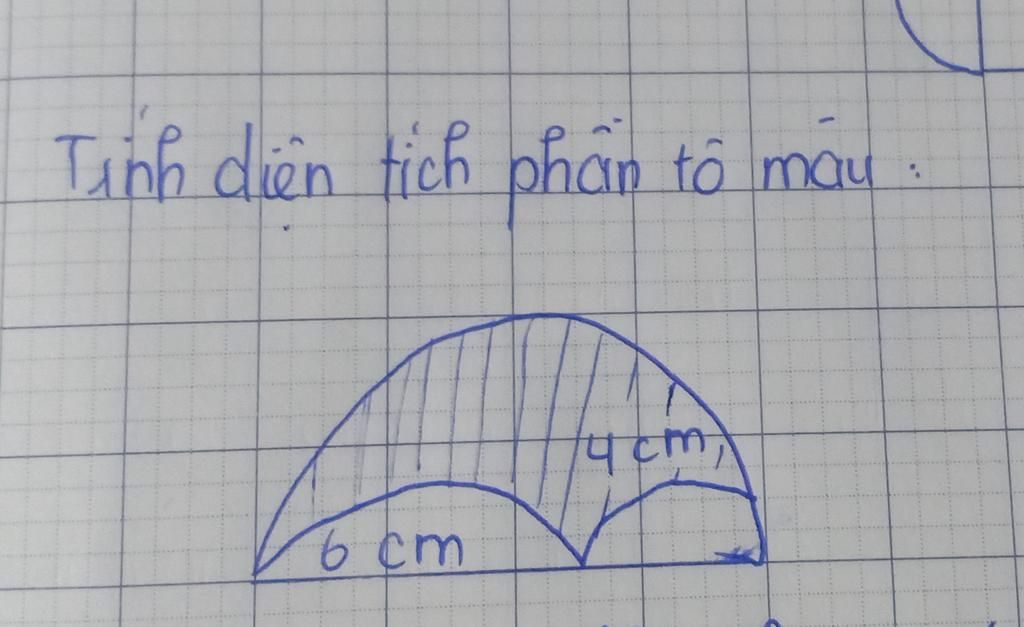 Tính diện tích phần tô màu :
4 cm
6 cm